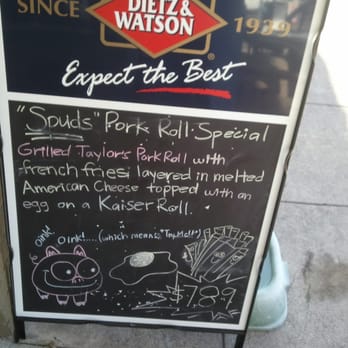 SINCE DIETZ & 1939
WATSON
Expect the Best
"Spuds" Pork Roll Special
Grilled Taylor's Pork Roll with
french fries layered in melted
American Cheese topped with an
egg on a Kaiser Roll.
oink!
Oink!....(which means
$7.89